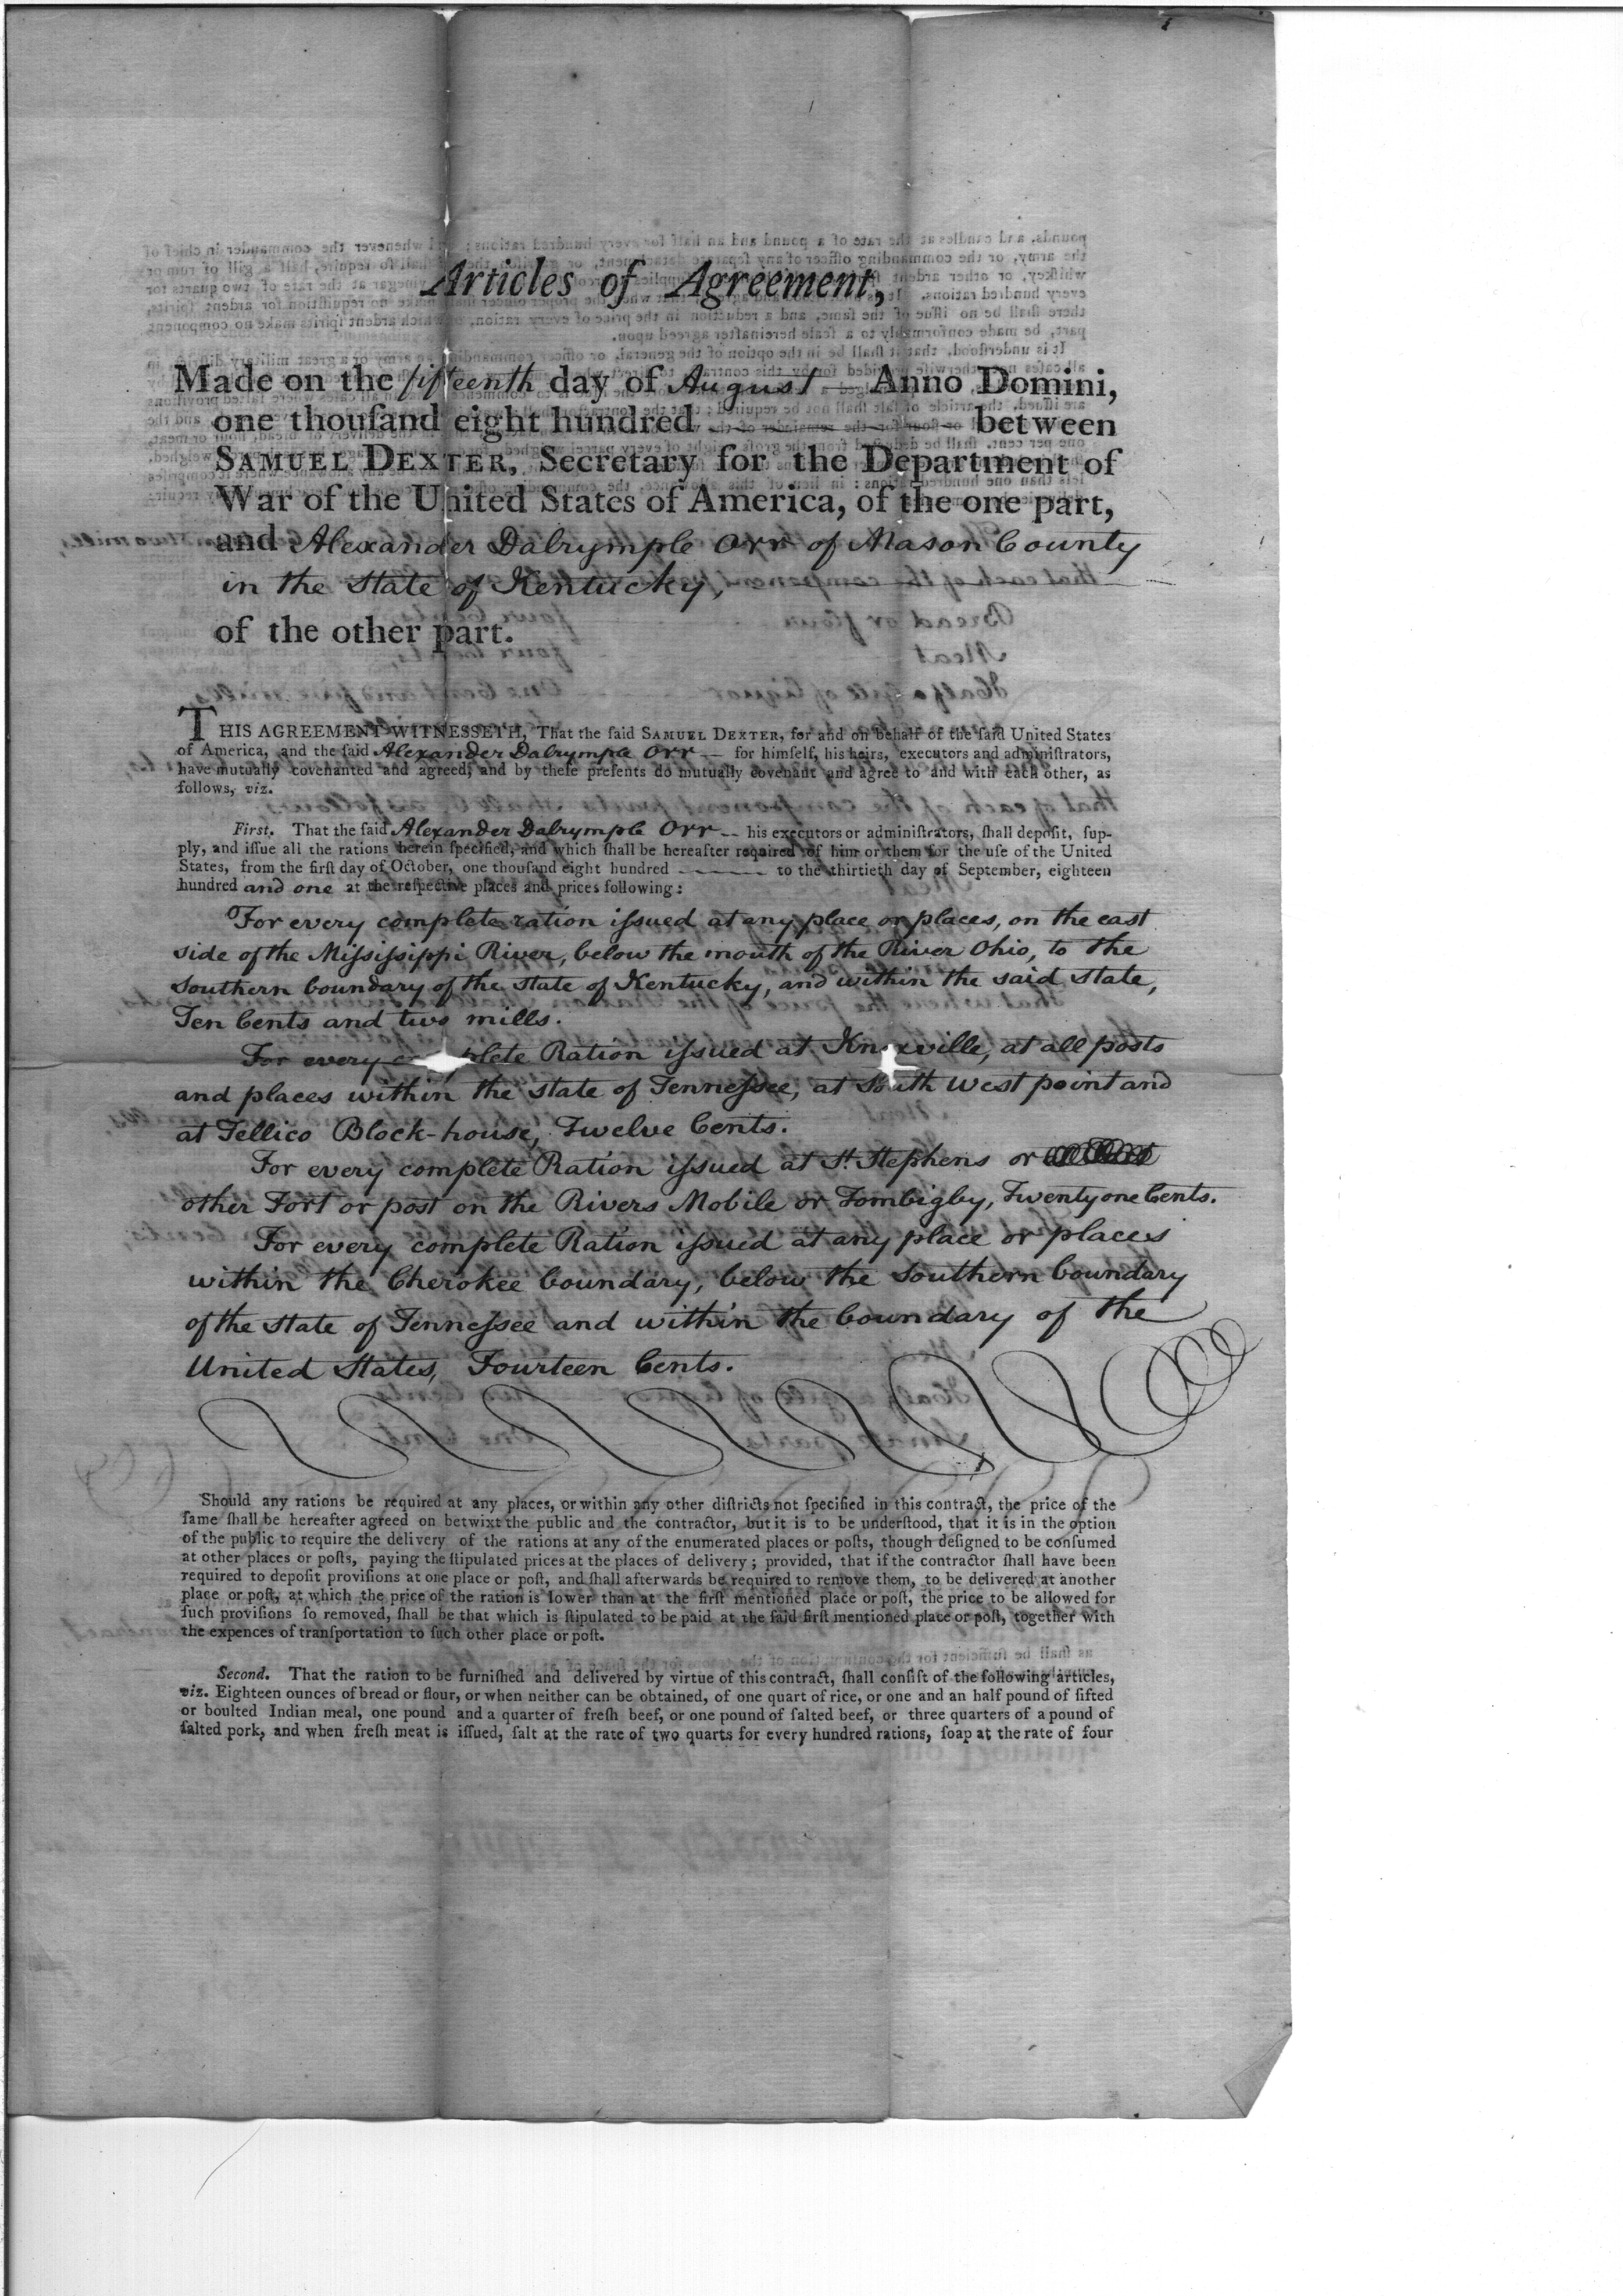 Articles of Agreement,
Made on the fifteenth day of August — Anno Domini,
one thouſand eight hundred — — — between
SAMUEL DEXTER, Secretary for the Department of
War of the United States of America, of the one part,
and Alexander Dalrymple Orr of Mason County
in the State of Kentucky,
of the other part.
THIS AGREEMENT WITNESSETH, That the ſaid SAMUEL DEXTER, for and on behalf of the ſaid United States
of America, and the ſaid Alexander Dalrymple Orr — for himſelf, his heirs, executors and adminiſtrators,
have mutually covenanted and agreed, and by theſe preſents do mutually covenant and agree to and with each other, as
follows, viz.
Firſt. That the ſaid Alexander Dalrymple Orr — his executors or adminiſtrators, ſhall depoſit, ſup-
ply, and iſſue all the rations herein ſpecified, and which ſhall be hereafter required of him or them for the uſe of the United
States, from the firſt day of October, one thouſand eight hundred — — — to the thirtieth day of September, eighteen
hundred and one at the reſpective places and prices following:
For every complete ration iſsued at any place or places, on the east
side of the Miſsiſsippi River, below the mouth of the River Ohio, to the
Southern boundary of the State of Kentucky, and within the said State,
Ten Cents and two mills.
For every complete Ration iſsued at Knoxville, at all posts
and places within the state of Tenneſsee, at South West point and
at Tellico Block-house, Twelve Cents.
For every complete Ration iſsued at St. Stephens or
other Fort or post on the Rivers Mobile or Tombigby, Twenty one Cents.
For every complete Ration iſsued at any place or places
within the Cherokee boundary, below the Southern boundary
of the State of Tenneſsee and within the boundary of the
United States, Fourteen Cents.
Should any rations be required at any places, or within any other diſtricts not ſpecified in this contract, the price of the
ſame ſhall be hereafter agreed on betwixt the public and the contractor, but it is to be underſtood, that it is in the option
of the public to require the delivery of the rations at any of the enumerated places or poſts, though deſigned to be conſumed
at other places or poſts, paying the ſtipulated prices at the places of delivery; provided, that if the contractor ſhall have been
required to depoſit proviſions at one place or poſt, and ſhall afterwards be required to remove them, to be delivered at another
place or poſt, at which the price of the ration is lower than at the firſt mentioned place or poſt, the price to be allowed for
ſuch proviſions ſo removed, ſhall be that which is ſtipulated to be paid at the ſaid firſt mentioned place or poſt, together with
the expences of tranſportation to ſuch other place or poſt.
Second. That the ration to be furniſhed and delivered by virtue of this contract, ſhall conſiſt of the following articles,
viz. Eighteen ounces of bread or flour, or when neither can be obtained, of one quart of rice, or one and an half pound of ſifted
or boulted Indian meal, one pound and a quarter of freſh beef, or one pound of ſalted beef, or three quarters of a pound of
ſalted pork, and when freſh meat is iſſued, ſalt at the rate of two quarts for every hundred rations, ſoap at the rate of four